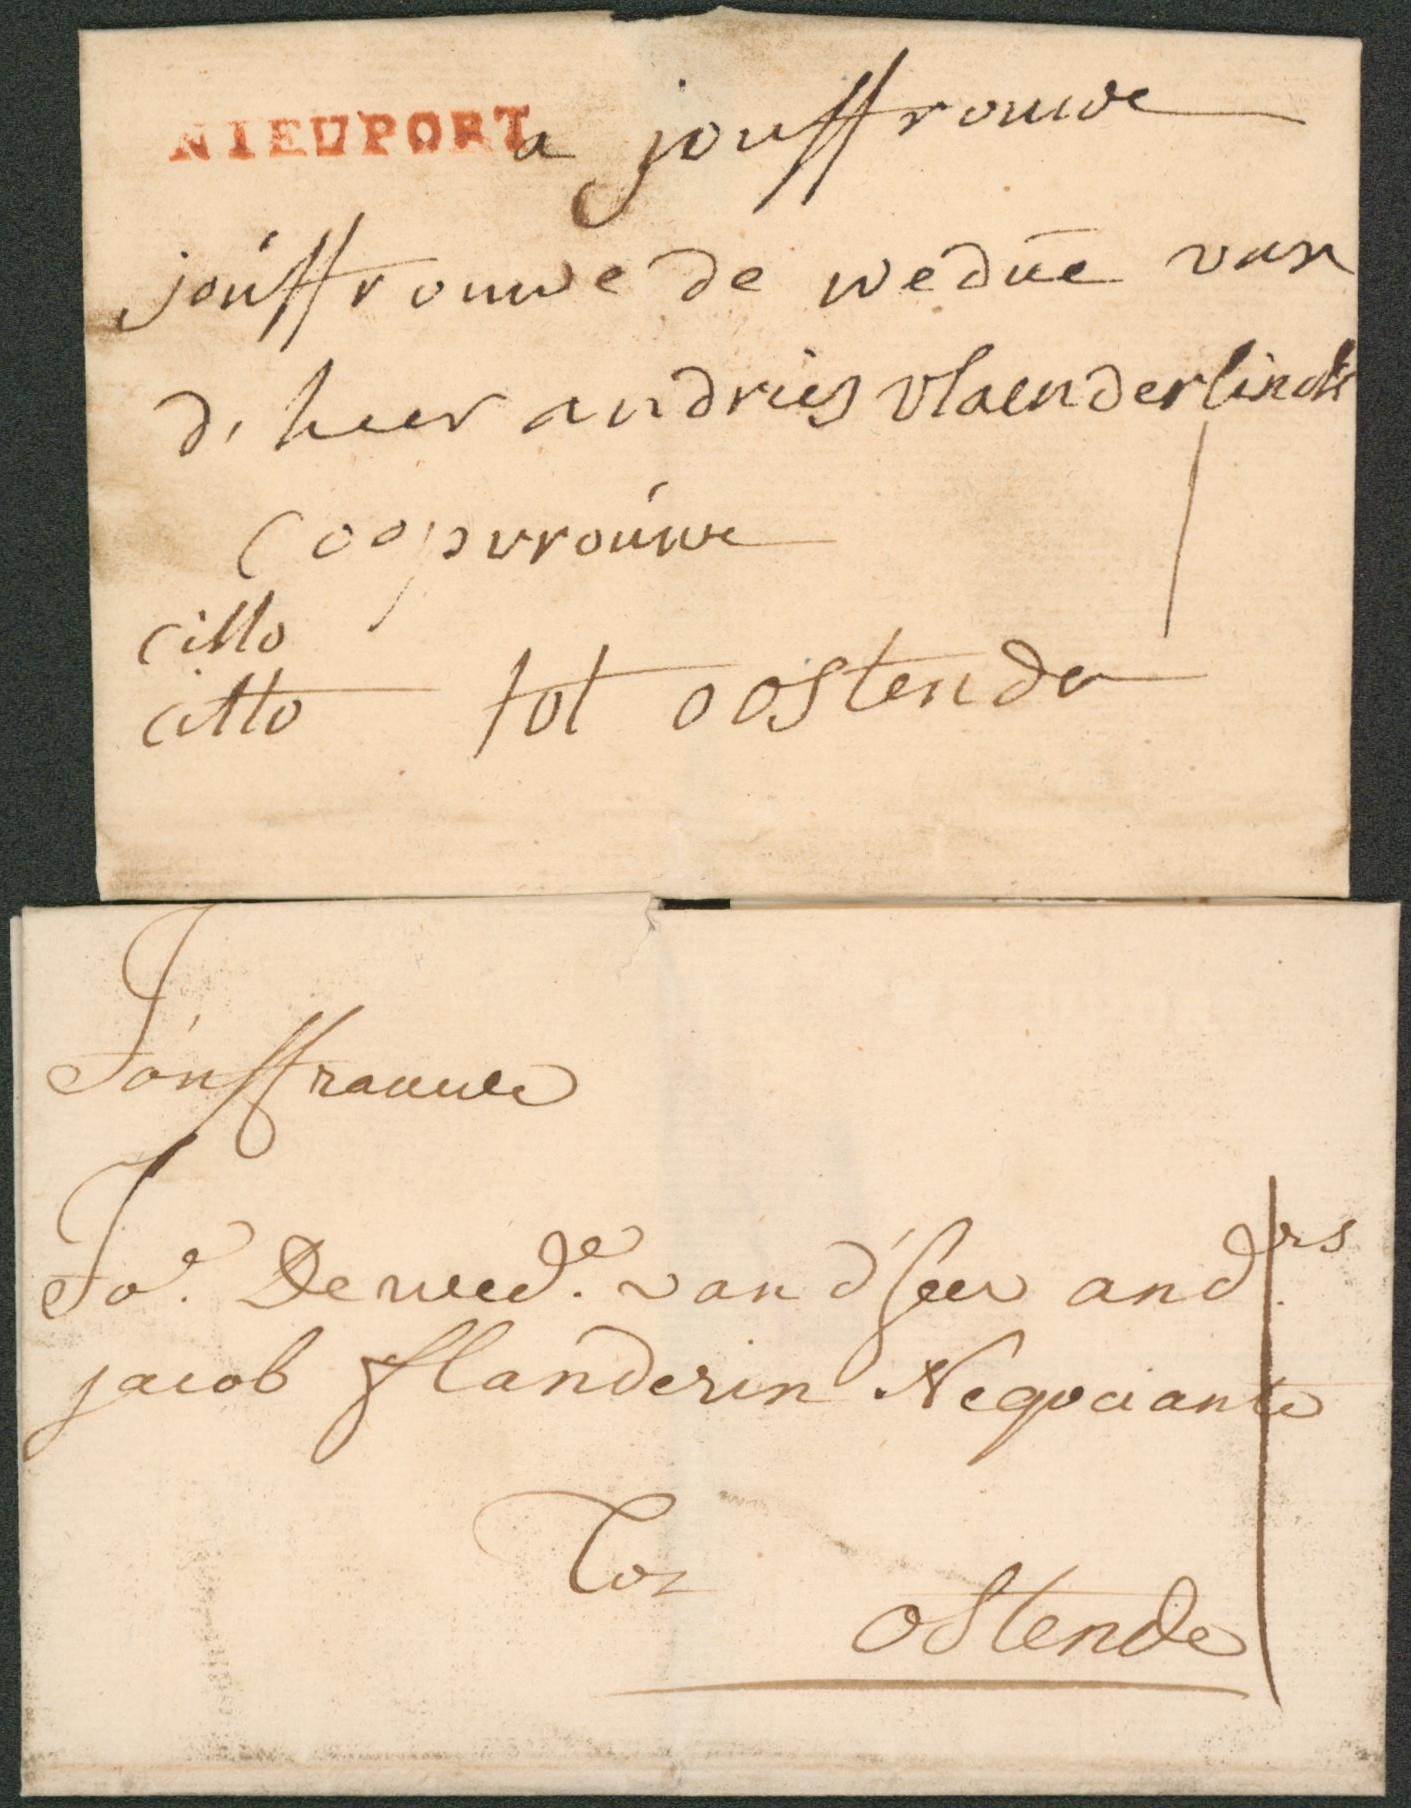 NIEUPORT
a jouffrouwe
jouffrouwe de wedūe van
d, heer andries vlaenderlinck
Coopvrouwe
citto
citto tot oostende
Jouffrauwe
Joe. De wede. van d'heer andrs.
jacob flanderin Negociante
Tot
ostende